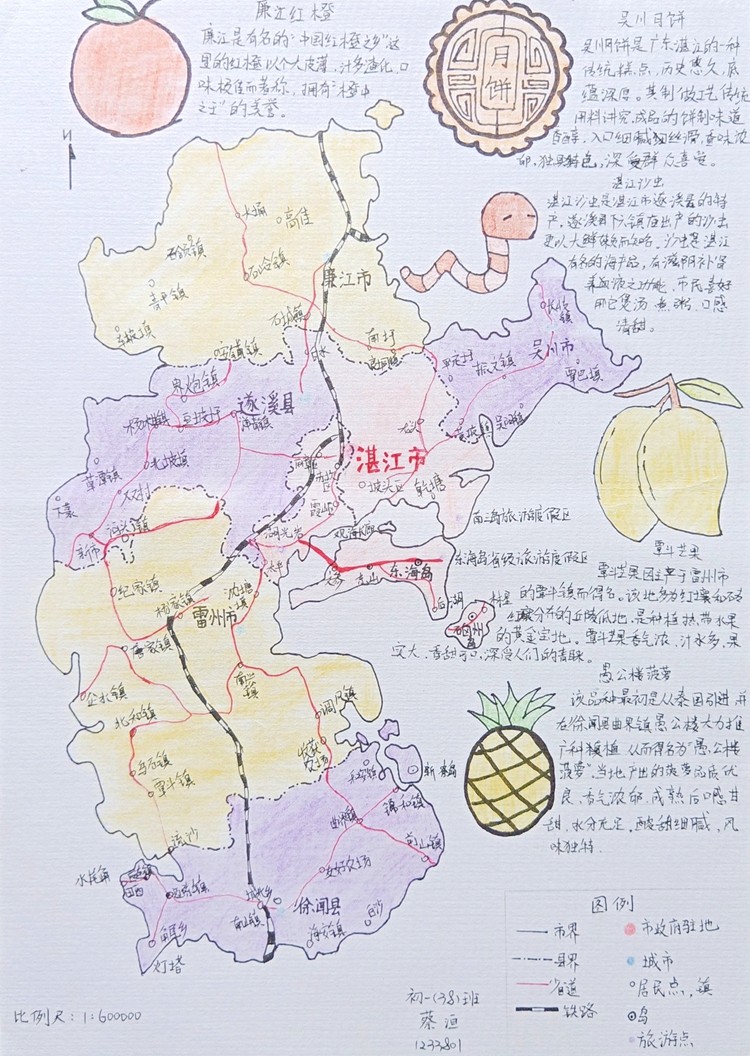 廉江红橙
廉江是有名的"中国红橙之乡"这
里的红橙以个大皮薄,汁多渣化,口
味极佳而著称,拥有"橙中
之王"的美誉。
月
饼
吴川月饼
吴川月饼是广东湛江的一种
传统糕点,历史悠久,底
蕴深厚。其制做工艺传统
用料讲究,成品的饼制味道
香醇,入口细腻如丝滑,香味浓
郁,独具特色,深受群众喜爱。
湛江沙虫
湛江沙虫是湛江市遂溪县的特
产,遂溪县下六镇在出产的沙虫
有名的海产品,有滋阴补肾
用它煲汤 煮粥,口感
清甜。
N
高佳
石岭镇
青平镇
廉江市
石城镇
南圩
良垌镇
吴川市
振文镇
覃巴镇
遂溪县
杨柑镇
豆坡圩
北坡镇
草潭镇
下寨
河头镇
湛江市
坡头区
乾塘
霞山区
南海旅游度假区
湖光岩
东海岛省级旅游度假区
东山
东海岛
硇洲岛
纪家镇
杨家镇
雷州市
沈塘镇
唐家镇
企水镇
北和镇
南兴镇
调风镇
乌石镇
覃斗镇
流沙
新寮岛
锦和镇
曲界镇
前山镇
友好农场
水尾镇
迈陈镇
城北乡
徐闻县
南山镇
海安镇
白沙
角尾乡
灯塔
覃斗芒果
覃斗芒果因主产于雷州市
的覃斗镇而得名。该地多为红壤和砂
红壤分布的丘陵低地,是种植热带水果
的黄金宝地。覃斗芒果香气浓、汁水多、果
实大、香甜可口,深受人们的青睐。
愚公楼菠萝
该品种最初是从泰国引进,并
在徐闻县曲界镇愚公楼大力推
广种植,从而得名为"愚公楼
菠萝",当地产出的菠萝品质优
良、香气浓郁、成熟后口感甘
甜、水分充足,酸甜细腻、风
味独特.
图例
市界
市政府驻地
县界
城市
省道
居民点,镇
铁路
岛
旅游点
比例尺:1:600000
初一(38)班
蔡洹
1233801